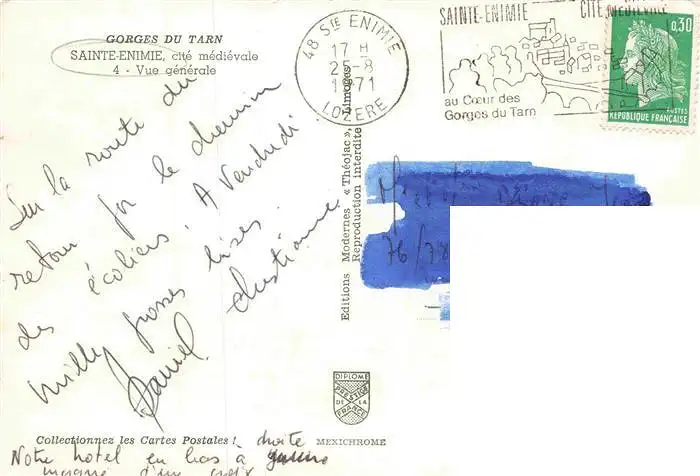 GORGES DU TARN
SAINTE-ENIMIE, cité médiévale
4 - Vue générale
Sur la route du
retour par le chemin
des écoliers. A Vendredi
Mille grosses bises.
Daniel. Christiane
Notre hotel en bas à droite
marqué d'une croix
Collectionnez les Cartes Postales !
MEXICHROME
Editions Modernes « Théojac », Limoges
Reproduction interdite
DIPLOME
PRESTIGE
DE LA
FRANCE
48 STE ENIMIE
17 H
25-8
1971
LOZERE
SAINTE-ENIMIE CITÉ MÉDIÉVALE
au Cœur des
Gorges du Tarn
0,30
POSTES
REPUBLIQUE FRANÇAISE
76/78